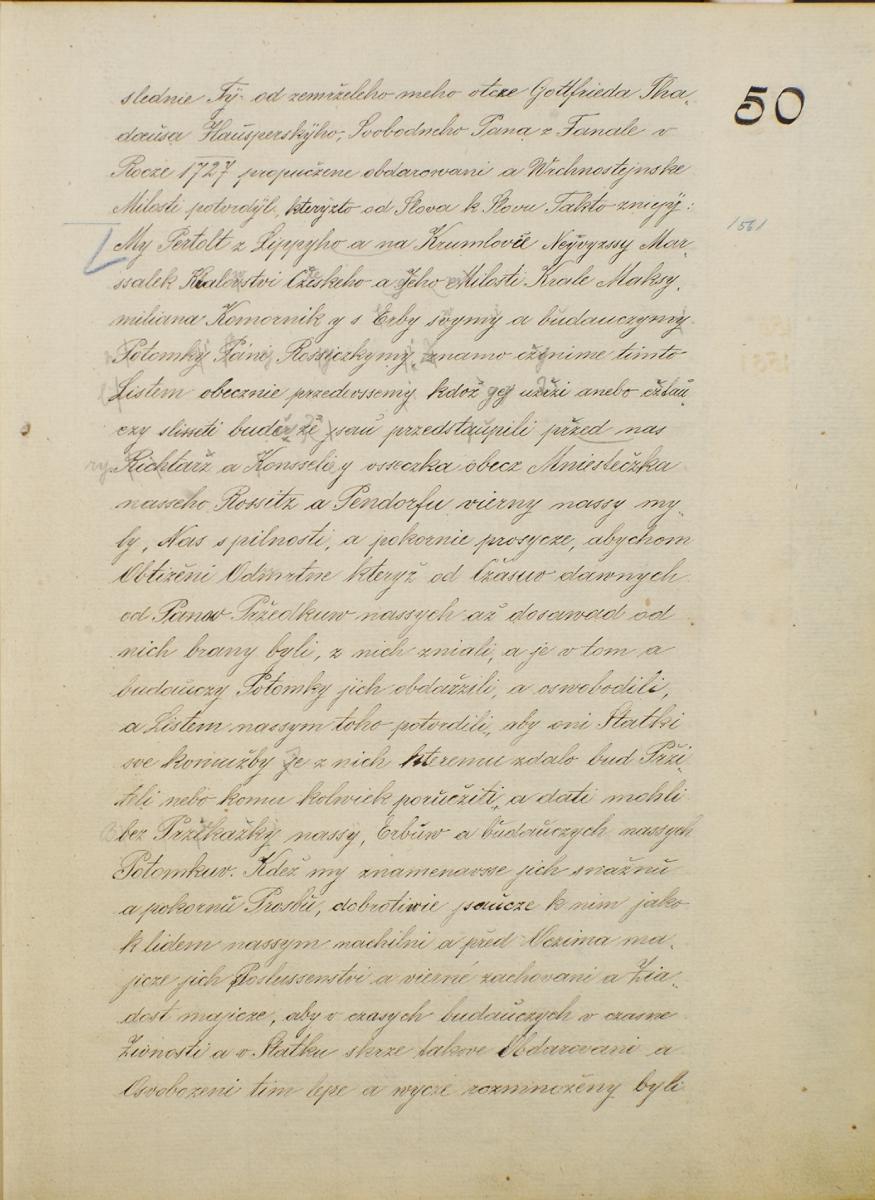 50
slednie Tÿ od zemrželeho meho otcze Gottfrieda Tha„
dæusa Hausperskÿho, Svobodneho Pana z Fanale v
Rocze 1727 propučzene obdarowani a Wrchnostejnske
Milosti potvrdÿl, kterÿzto od Slova k Slovu Takto zniejÿ:
1561
My Pertolt z Lippyho a na Krumlovie Neÿvyzssy Mar„
ssalek Kralowstvi Czeskeho a Jeho Milosti Krale Maksy„
miliana Komornik y s Erby svymy a budauczymy
Potomky Pani Rossiczkymy, znamo czynime timto
Listem obecznie przedevssemy kdož gej uzrzi anebo cztau„
czy slisseti budau, že jsau przedstaupili před nas
Richtarž a Konsseli y vsseczka obecz Mniestečzka
nasseho Rossitz a Pendorfu vierny nassy my„
ly, Nas s pilnosti, a pokornie prosycze, abychom
Obtižěni Odmrtne kteryž od Czasuw dawnych
od Panow Pržedkuw nassych až dosawad od
nich brany byli, z nich zniali, a je v tom a
budauczy Potomky jich obdaržili, a oswobodili,
a Listem nassym toho potvrdili, aby oni Statki
sve komužby se z nich kteremu zdalo bud Prži„
teli nebo komu kolwiek poručžiti, a dati mohli
bez Pržekažky nassy, Erbuw a budauczych nassych
Potomkuv. Kdež my znamenavsse jich snažnu
a pokornu Prosbu, dobrotiwie jsaucze k nim jako
k lidem nassym nachilni a před Oczima ma„
jicze jich Poslussenstvi a vierné zachovani a Žia„
dost majicze, aby v czasych budauczych v czasne
Živnosti a v Statku skrze takove Obdarovani a
Osvobozeni tim lepe a wycze rozmnoženy byli